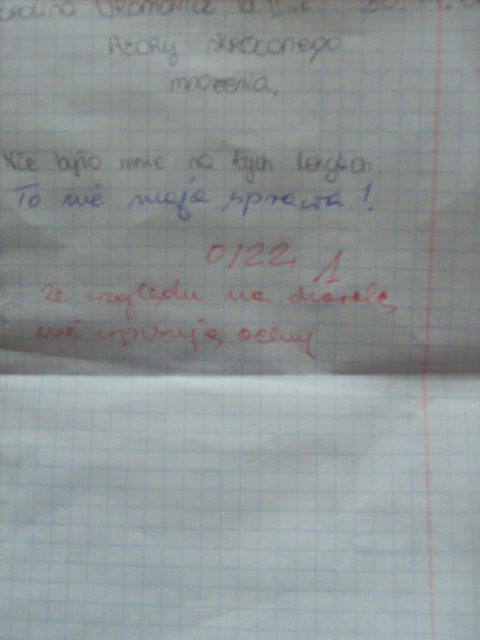 Wzory skróconego
mnożenia.
Nie było mnie na tych lekcjach
To nie moja sprawa!
0/22. 1
ze względu na chorobę
nie wpisuję oceny